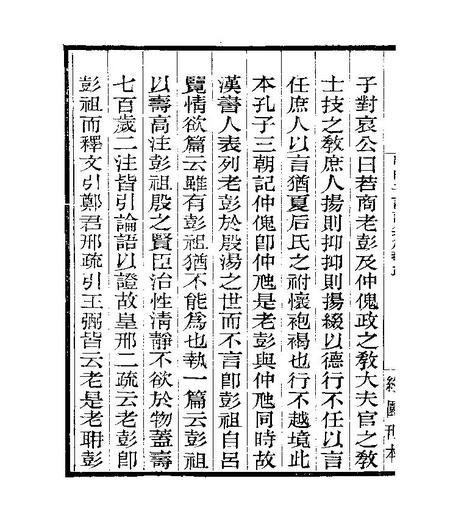 子對哀公曰若商老彭及仲傀政之教大夫官之教
士技之教庶人揚則抑抑則揚綴以德行不任以言
任庶人以言猶夏后氏之祔懷袍褐也行不越境此
本孔子三朝記仲傀卽仲虺是老彭與仲虺同時故
漢書人表列老彭於殷湯之世而不言卽彭祖自呂
覽情欲篇云雖有彭祖猶不能為也執一篇云彭祖
以壽高注彭祖殷之賢臣治性清靜不欲於物蓋壽
七百歲二注皆引論語以證故皇邢二疏云老彭卽
彭祖而釋文引鄭君邢疏引王弼皆云老是老聃彭